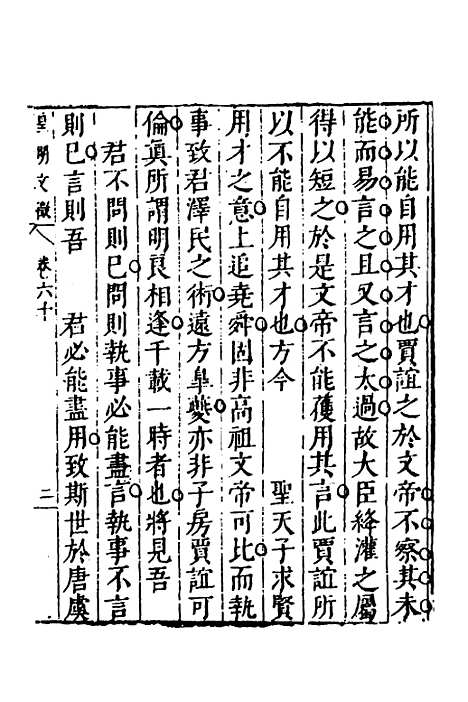 所以能自用其才也賈誼之於文帝不察其未
能而易言之且又言之太過故大臣絳灌之屬
得以短之於是文帝不能獲用其言此賈誼所
以不能自用其才也方今　聖天子求賢
用才之意上追堯舜固非高祖文帝可比而執
事致君澤民之術遠方臯夔亦非子房賈誼可
倫眞所謂明良相逢千載一時者也將見吾
君不問則已問則執事必能盡言執事不言
則已言則吾　君必能盡用致斯世於唐虞
皇明文徵　卷六十　三